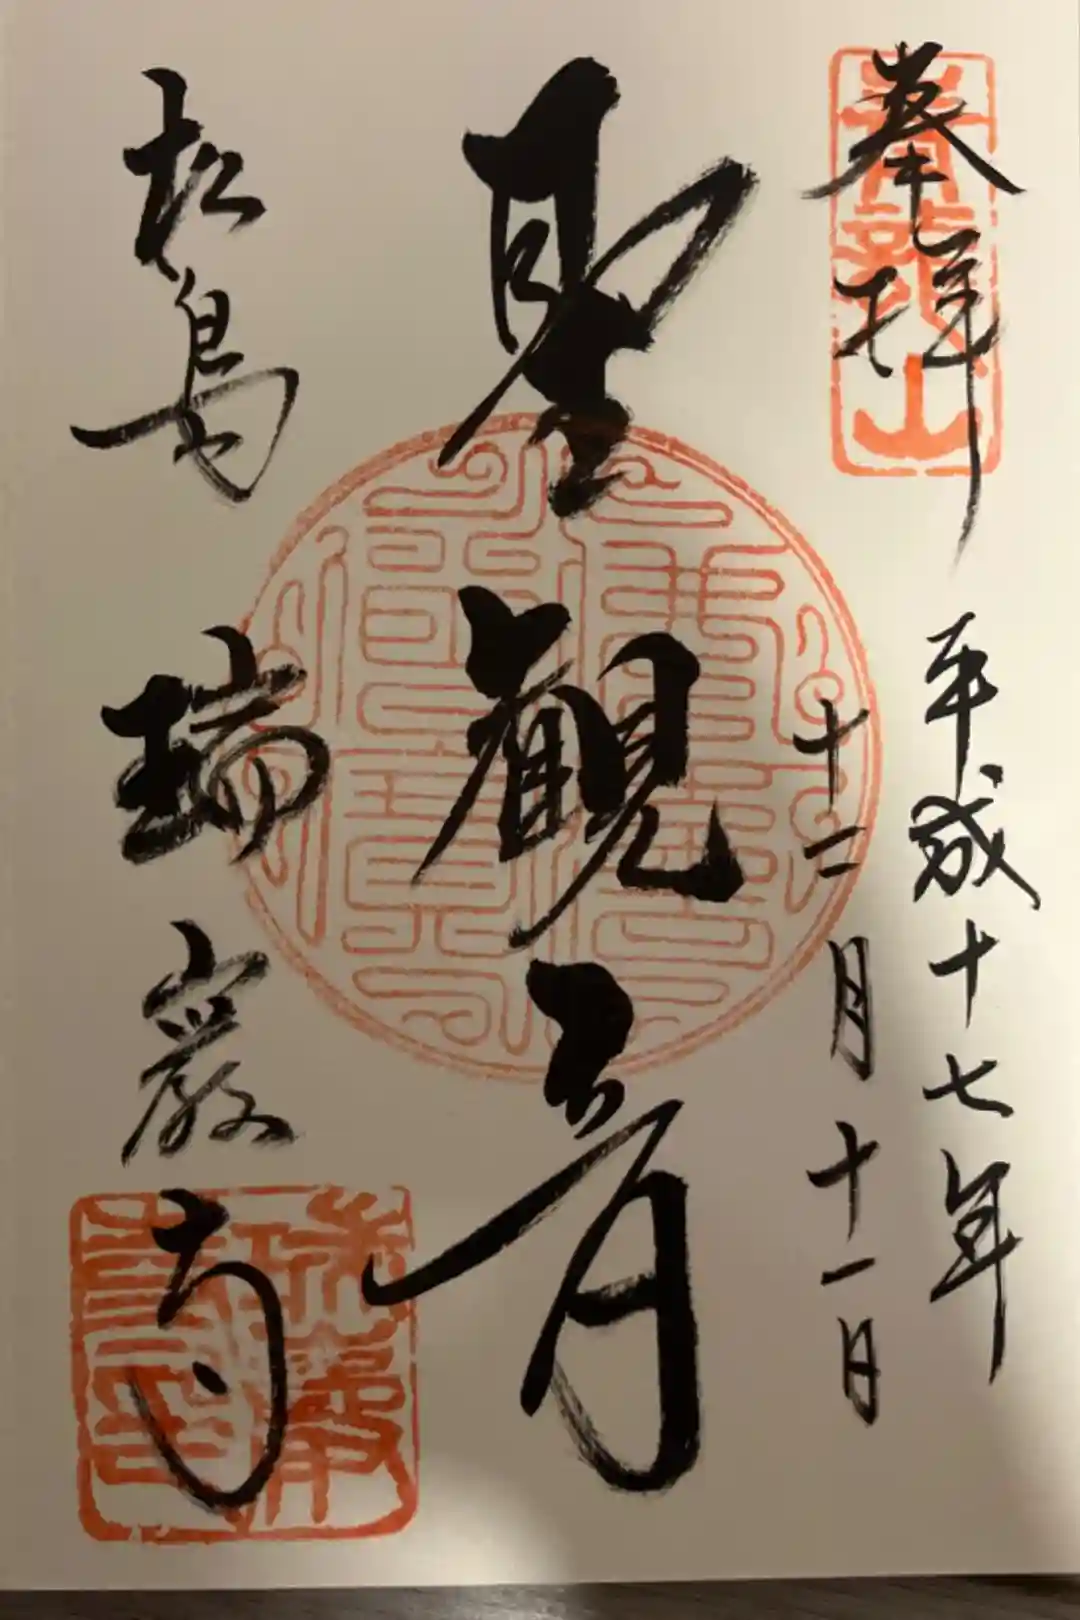 奉拝
平成十七年
十二月十一日
聖観音
松島
瑞巌寺
青龍山